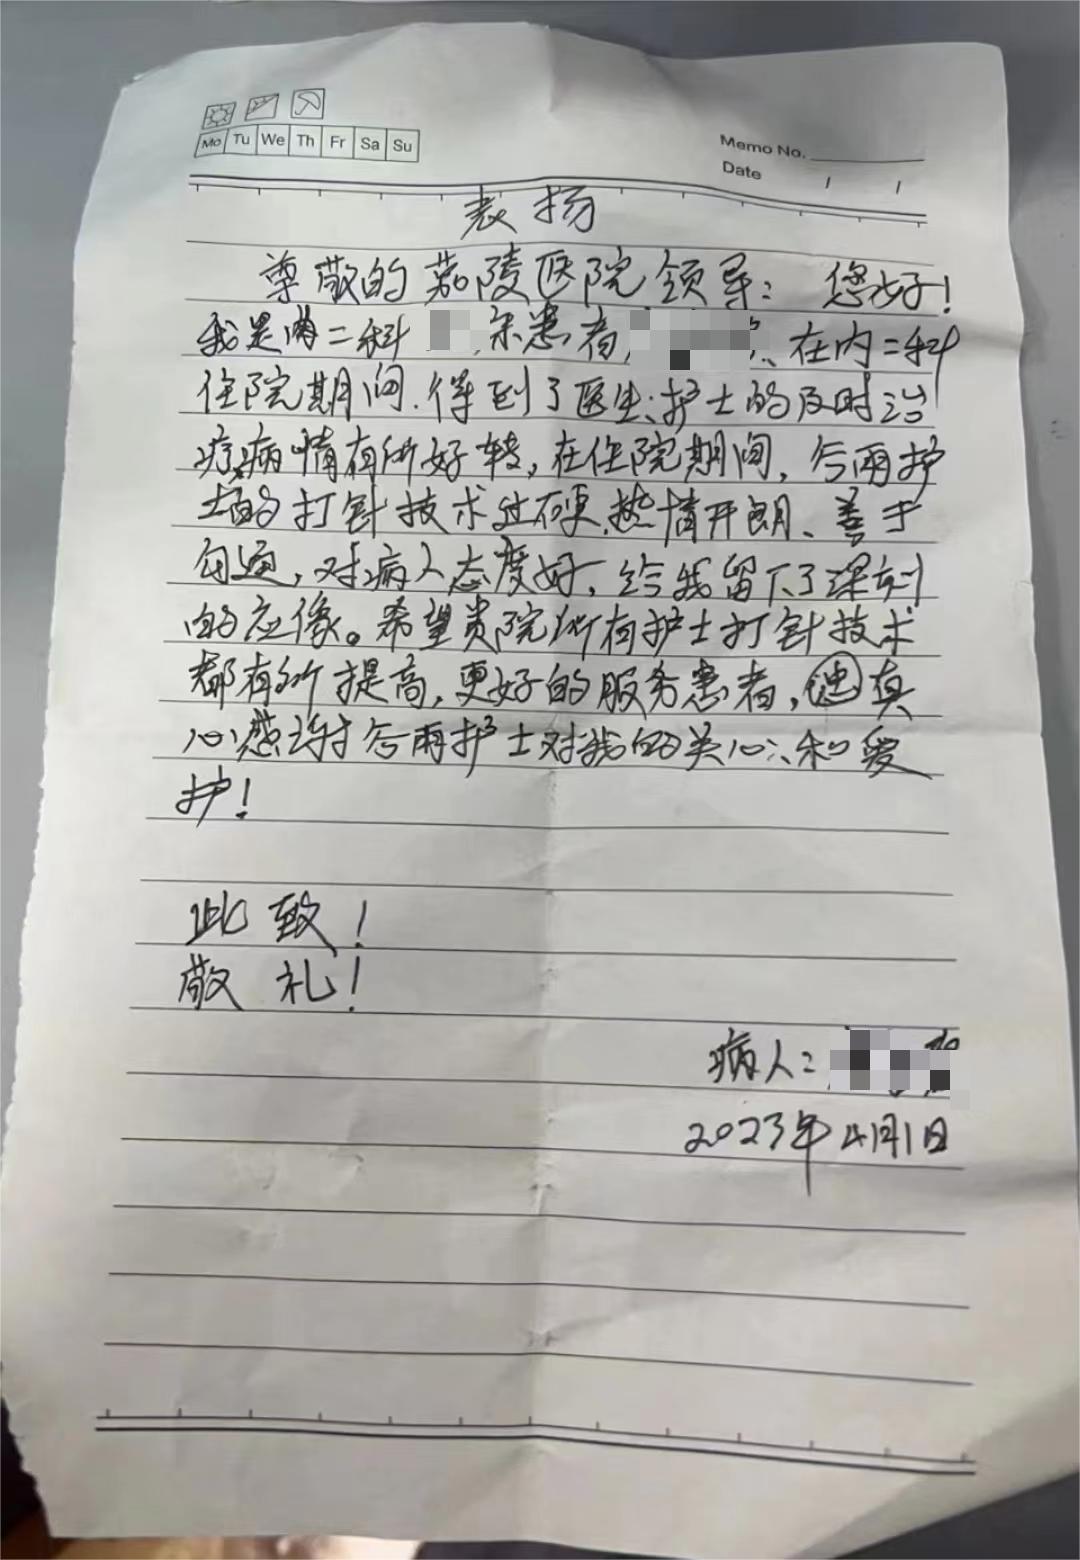 Mo Tu We Th Fr Sa Su
Memo No.
Date / /
表扬
尊敬的嘉陵医院领导：您好！
我是内二科 床患者 、在内二科
住院期间.得到了医生、护士的及时治
疗,病情有所好转,在住院期间,令雨护
士的打针技术过硬,热情开朗、善于
勾通,对病人态度好,给我留下了深刻
的应像。希望贵院所有护士打针技术
都有所提高,更好的服务患者, 真
心感谢令雨护士对我的关心、和爱
护!
此致!
敬礼!
病人:
2023年4月1日